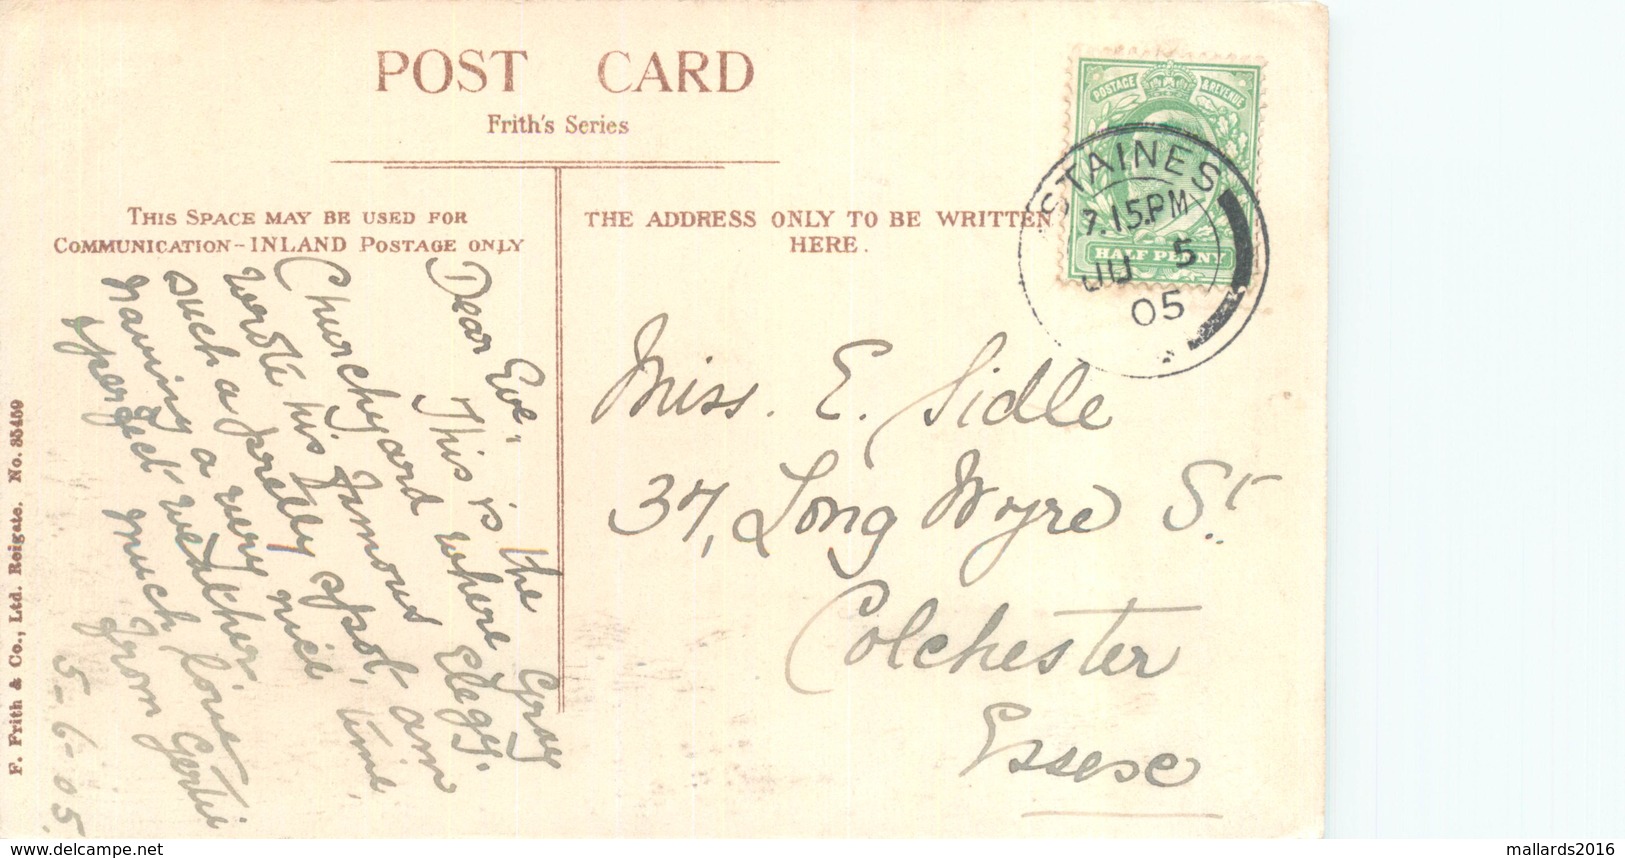 POST CARD
Frith's Series
THIS SPACE MAY BE USED FOR
COMMUNICATION-INLAND POSTAGE ONLY
THE ADDRESS ONLY TO BE WRITTEN
HERE.
POSTAGE & REVENUE
HALF PENNY
STAINES
7.15.PM
JU 5
05
Dear Eve,
This is the
Churchyard where Gray
wrote his famous Elegy.
such a pretty spot, & am
having a very nice time
perfect weather.
much love
from Gertie
5-6-05.
Miss. E. Sidle
37, Long Wyre St.
Colchester
Essex
F. Frith & Co., Ltd. Reigate. No. 35459
delcampe.net
mallards2016